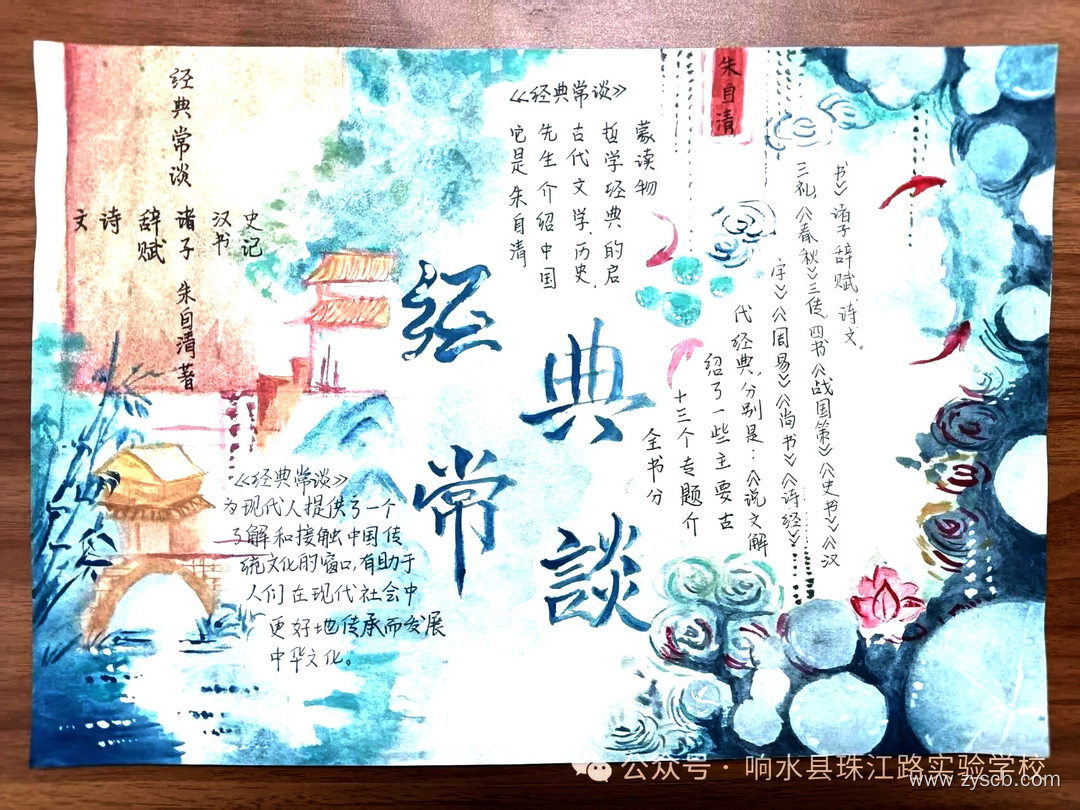 经典常谈
史记
汉书
诸子
辞赋
诗
文
朱自清著
《经典常谈》
它是朱自清
先生介绍中国
古代文学、历史、
哲学经典的启
蒙读物
朱自清
经典常談
全书分
十三个专题介
绍了一些主要古
代经典,分别是:《说文解
字》《周易》《尚书》《诗经》
三礼《春秋》三传 四书《战国策》《史书》《汉
书》诸子 辞赋 诗文。
《经典常谈》
为现代人提供了一个
了解和接触中国传
统文化的窗口,有助于
人们在现代社会中
更好地传承而发展
中华文化。
公众号·响水县珠江路实验学校
www.zyscb.com